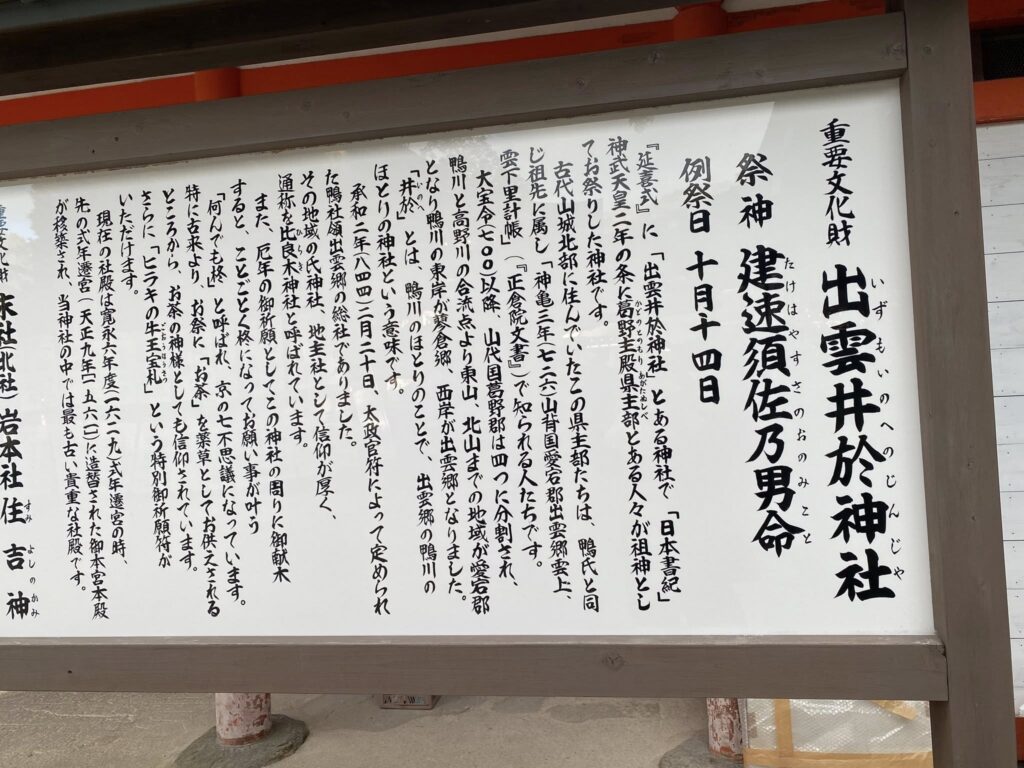 重要文化財
出雲井於神社
いずもいのへのじんじゃ
祭神 建速須佐乃男命
たけはやすさのおのみこと
例祭日 十月十四日
『延喜式』に「出雲井於神社」とある神社で「日本書紀」
神武天皇二年の条に葛野主殿県主部とある人々が祖神とし
かどののとのもりのあがたぬしべ
てお祭りした神社です。
古代山城北部に住んでいたこの県主部たちは、鴨氏と同
じ祖先に属し「神亀三年(七二六)山背国愛宕郡出雲郷雲上、
雲下里計帳」(『正倉院文書』)で知られる人たちです。
大宝令(七〇〇)以降、山代国葛野郡は四つに分割され、
鴨川と高野川の合流点より東山、北山までの地域が愛宕郡
となり鴨川の東岸が蓼倉郷、西岸が出雲郷となりました。
「井於」とは、鴨川のほとりのことで、出雲郷の鴨川の
ほとりの神社という意味です。
承和二年(八四四)二月二十日、太政官符によって定められ
た鴨社領出雲郷の総社でありました。
その地域の氏神社、地主社として信仰が厚く、
通称を比良木神社と呼ばれています。
ひらき
また、厄年の御祈願としてこの神社の周りに御献木
すると、ことごとく柊になってお願い事が叶う
「何んでも柊」と呼ばれ、京の七不思議になっています。
特に古来より、お祭に「お茶」を薬草としてお供えされる
ところから、お茶の神様としても信仰されています。
さらに「ヒラキの牛王宝札」という特別御祈願符が
ごおうほうさつ
いただけます。
現在の社殿は寛永六年度(一六二九)式年遷宮の時、
先の式年遷宮(天正九年(一五八一)に造替された御本宮本殿
が移築され、当神社の中では最も古い貴重な社殿です。
重要文化財
末社(北社)岩本社 住吉神
すみよしのかみ